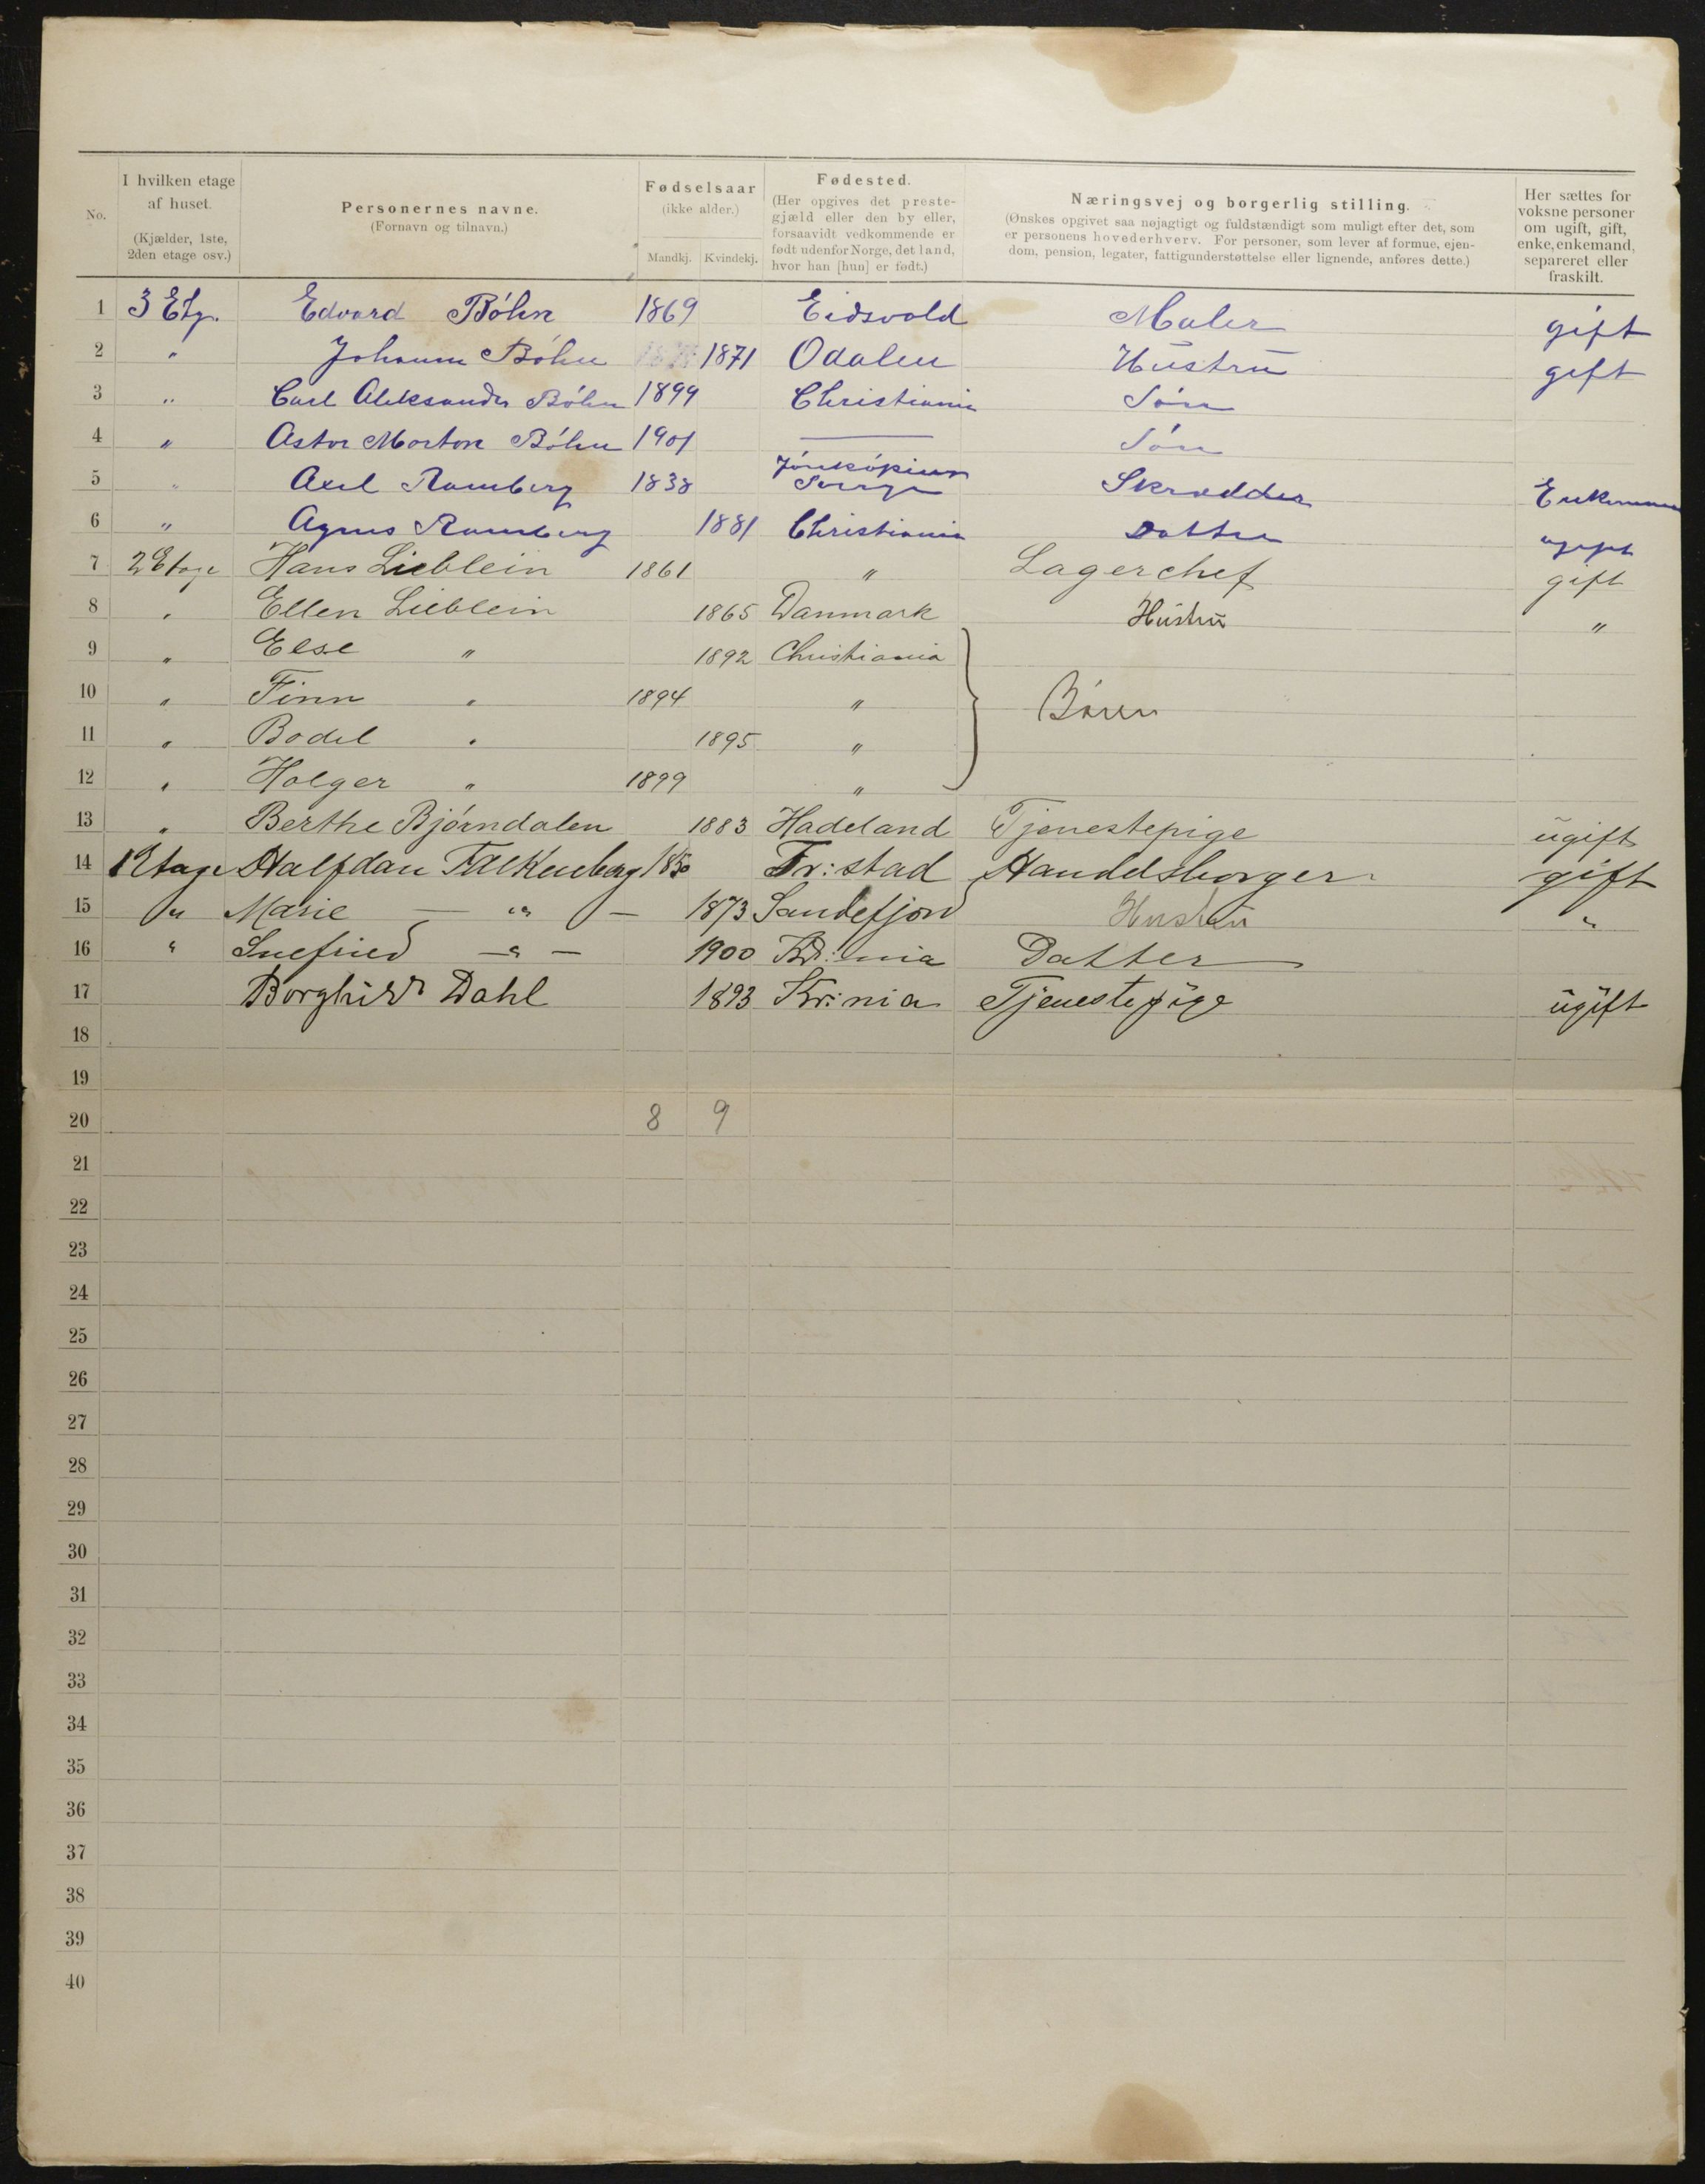 No. | I hvilken etage af huset. (Kjælder, 1ste, 2den etage osv.) | Personernes navne. (Fornavn og tilnavn.) | Fødselsaar (ikke alder.) Mandkj. Kvindekj. | Fødested. (Her opgives det prestegjæld eller den by eller, forsaavidt vedkommende er født udenfor Norge, det land, hvor han [hun] er født.) | Næringsvej og borgerlig stilling. (Ønskes opgivet saa nøjagtigt og fuldstændigt som muligt efter det, som er personens hovederhverv. For personer, som lever af formue, ejendom, pension, legater, fattigunderstøttelse eller lignende, anføres dette.) | Her sættes for voksne personer om ugift, gift, enke, enkemand, separeret eller fraskilt.
1 3 Etg. Edvard Bøhn 1869 Eidsvold Maler gift
2 " Johanne Bøhn 1871 Odalen Hustru gift
3 " Carl Aleksander Bøhn 1899 Christiania Søn
4 " Astor Morton Bøhn 1901 — Søn
5 " Axel Ramberg 1838 Jönköping Sverge Skrædder Enkemand
6 " Agnes Ramberg 1881 Christiania Datter ugift
7 2 Etage Hans Lieblein 1861 " Lagerchef gift
8 " Ellen Lieblein 1865 Danmark Hustru "
9 " Else " 1892 Christiania
10 " Finn " 1894 " Børn
11 " Bodil " 1895 "
12 " Holger " 1899 "
13 " Berthe Bjørndalen 1883 Hadeland Tjenestepige ugift
14 1 Etage Halfdan Falkenberg 1850 Fr:stad Handelsborger gift
15 " Marie — " — 1873 Sandefjord Hustru "
16 " Snefried — " — 1900 Kr:nia Datter
17 Borghild Dahl 1893 Kr:nia Tjenestepige ugift
18
19
20 8 9
21
22
23
24
25
26
27
28
29
30
31
32
33
34
35
36
37
38
39
40